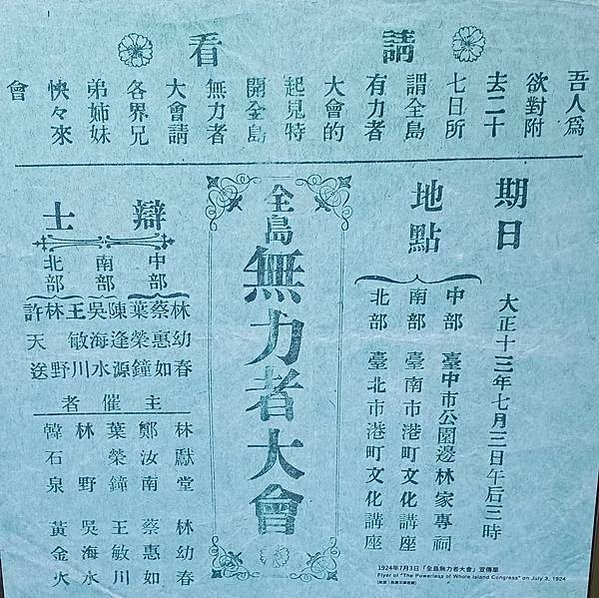 請看
吾人爲
欲對附
去二十
七日所
謂全島
有力者
大會的
起見特
開全島
無力者
大會請
各界兄
弟姉妹
快々來
會
期日
大正十三年七月三日午后三時
地點
中部 臺中市公園邊林家專祠
南部 臺南市港町文化講座
北部 臺北市港町文化講座
全島無力者大會
辯士
中部
林幼春
蔡惠如
葉榮鐘
南部
陳逢源
吳海水
北部
王敏川
林野
許天送
主催者
林獻堂 林幼春
鄭汝南 蔡惠如
葉榮鐘 王敏川
林野 吳海水
韓石泉 黃金火
1924年7月3日「全島無力者大會」宣傳單
Flyer of "The Powerless of Whole Island Congress" on July 3, 1924